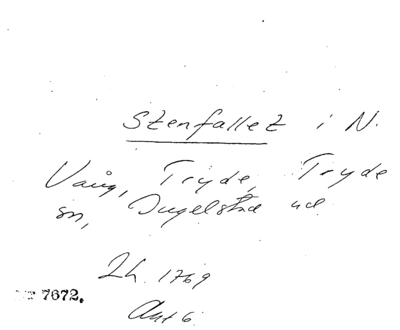 Stenfallet i N.
Vång, Tryde, Tryde
sn, Ingelstad
Lh. 1769
Akt 6
7672.